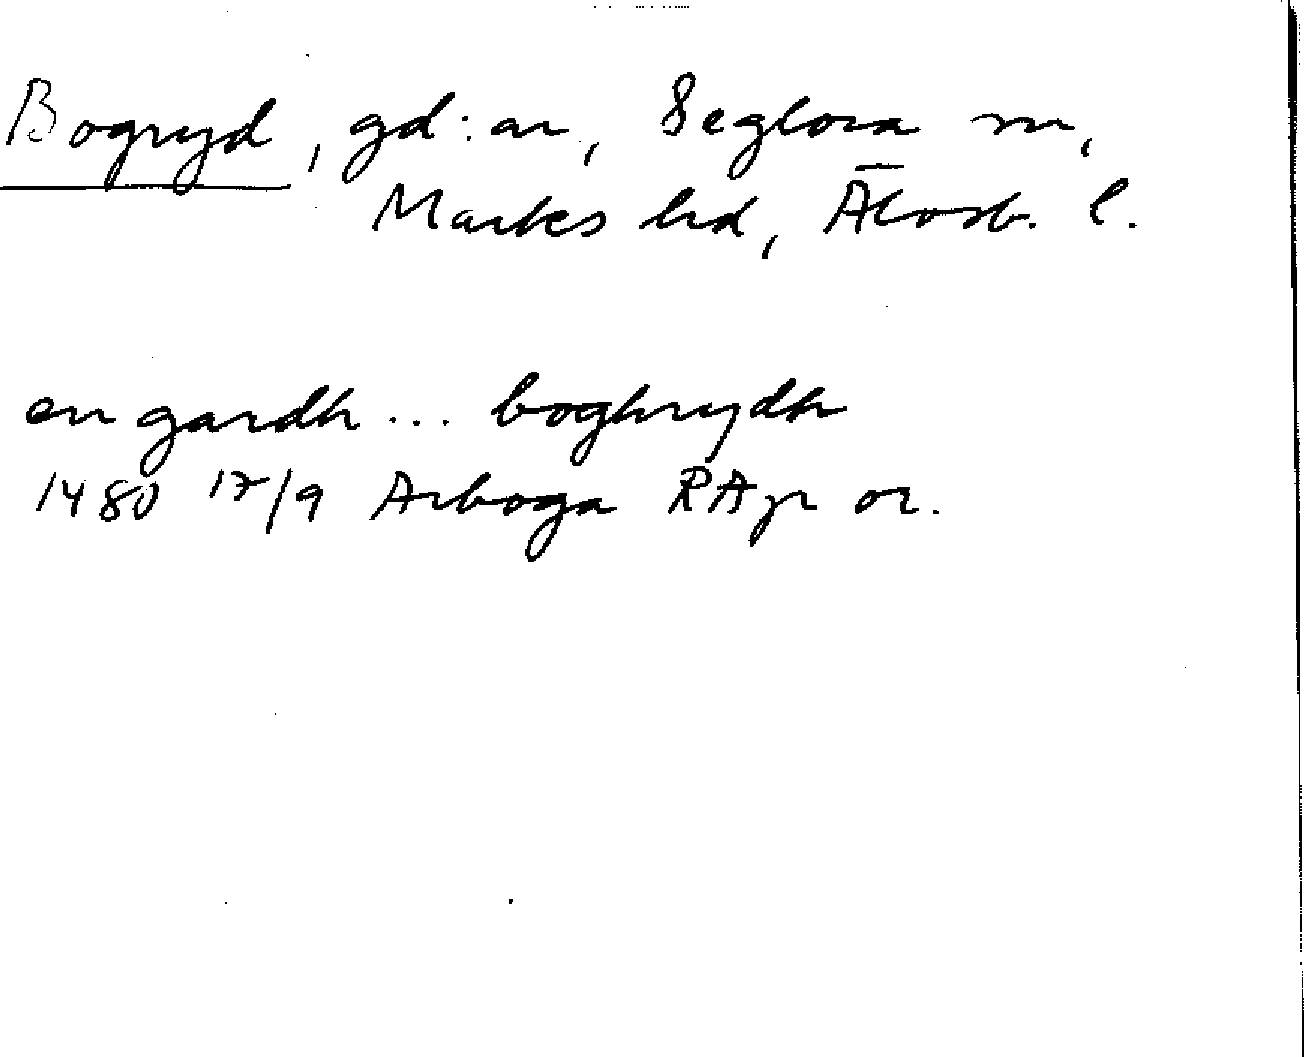 Bogryd, gd:ar, Seglora sn,
Marks hd, Älvsb. l.
en gardh... boghrydh
1480 17/9 Arboga RAp or.